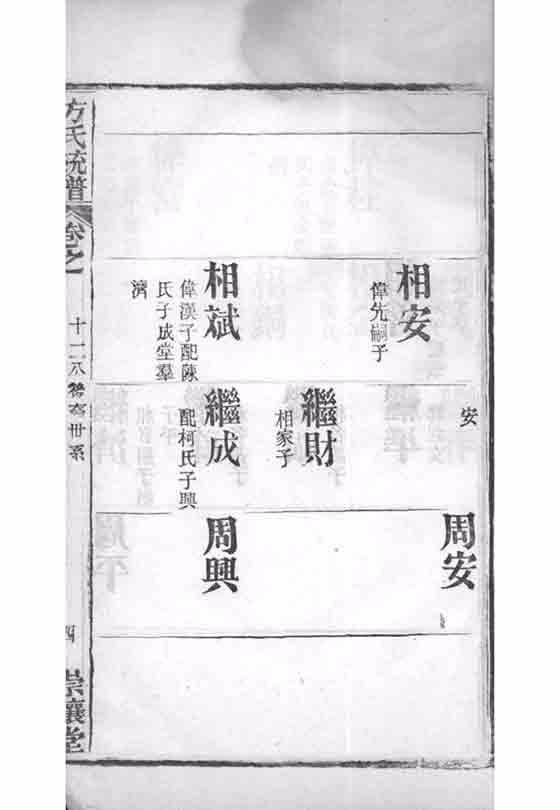 相安
偉先嗣子
相斌
偉漢子配陳
氏子成堂羣
濟
安
繼財
相家子
繼成
配柯氏子興
周安
周興
方氏統譜
卷之
四
崇讓堂